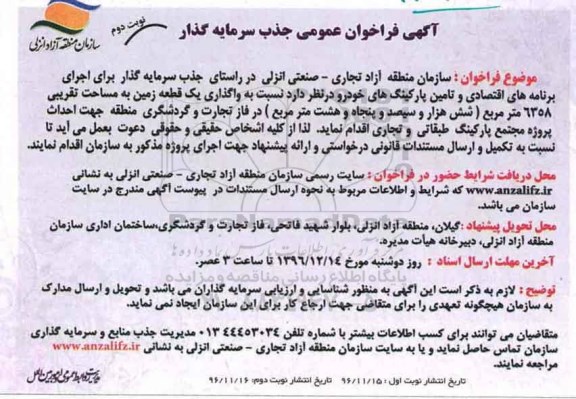 نوبت دوم
آگهی فراخوان عمومی جذب سرمایه گذار
سازمان منطقه آزاد انزلی
موضوع فراخوان : سازمان منطقه آزاد تجاری - صنعتی انزلی در راستای جذب سرمایه گذار برای اجرای
برنامه های اقتصادی و تامین پارکینگ های خودرو درنظر دارد نسبت به واگذاری یک قطعه زمین به مساحت تقریبی
۶۳۵۸ متر مربع ( شش هزار و سیصد و پنجاه و هشت متر مربع ) در فاز تجارت و گردشگری منطقه جهت احداث
پروژه مجتمع پارکینگ طبقاتی و تجاری اقدام نماید. لذا از کلیه اشخاص حقیقی و حقوقی دعوت بعمل می آید تا
نسبت به تکمیل و ارسال مستندات قانونی درخواستی و ارائه پیشنهاد جهت اجرای پروژه مذکور به سازمان اقدام نمایند.
محل دریافت شرایط حضور در فراخوان : سایت رسمی سازمان منطقه آزاد تجاری - صنعتی انزلی به نشانی
www.anzalifz.ir که شرایط و اطلاعات مربوط به نحوه ارسال مستندات در پیوست آگهی مندرج در سایت
سازمان می باشد.
محل تحویل پیشنهاد : گیلان، منطقه آزاد انزلی، بلوار شهید فاتحی، فاز تجارت و گردشگری،ساختمان اداری سازمان
منطقه آزاد انزلی، دبیرخانه هیأت مدیره.
آخرین مهلت ارسال اسناد : روز دوشنبه مورخ ۱۳۹۶/۱۲/۱۴ تا ساعت ۳ عصر.
توضیح : لازم به ذکر است این آگهی به منظور شناسایی و ارزیابی سرمایه گذاران می باشد و تحویل و ارسال مدارک
به سازمان هیچگونه تعهدی را برای متقاضی جهت ارجاع کار برای این سازمان ایجاد نمی نماید.
متقاضیان می توانند برای کسب اطلاعات بیشتر با شماره تلفن ۴۴۴۵۳۰۳۴ ۰۱۳ مدیریت جذب منابع و سرمایه گذاری
سازمان تماس حاصل نماید و یا به سایت سازمان منطقه آزاد تجاری - صنعتی انزلی به نشانی www.anzalifz.ir
مراجعه نمایند.
تاریخ انتشار نوبت اول : ۹۶/۱۱/۱۵ تاریخ انتشار نوبت دوم: ۹۶/۱۱/۱۶
ParsNamadData
پایگاه اطلاع رسانی مناقصه و مزایده